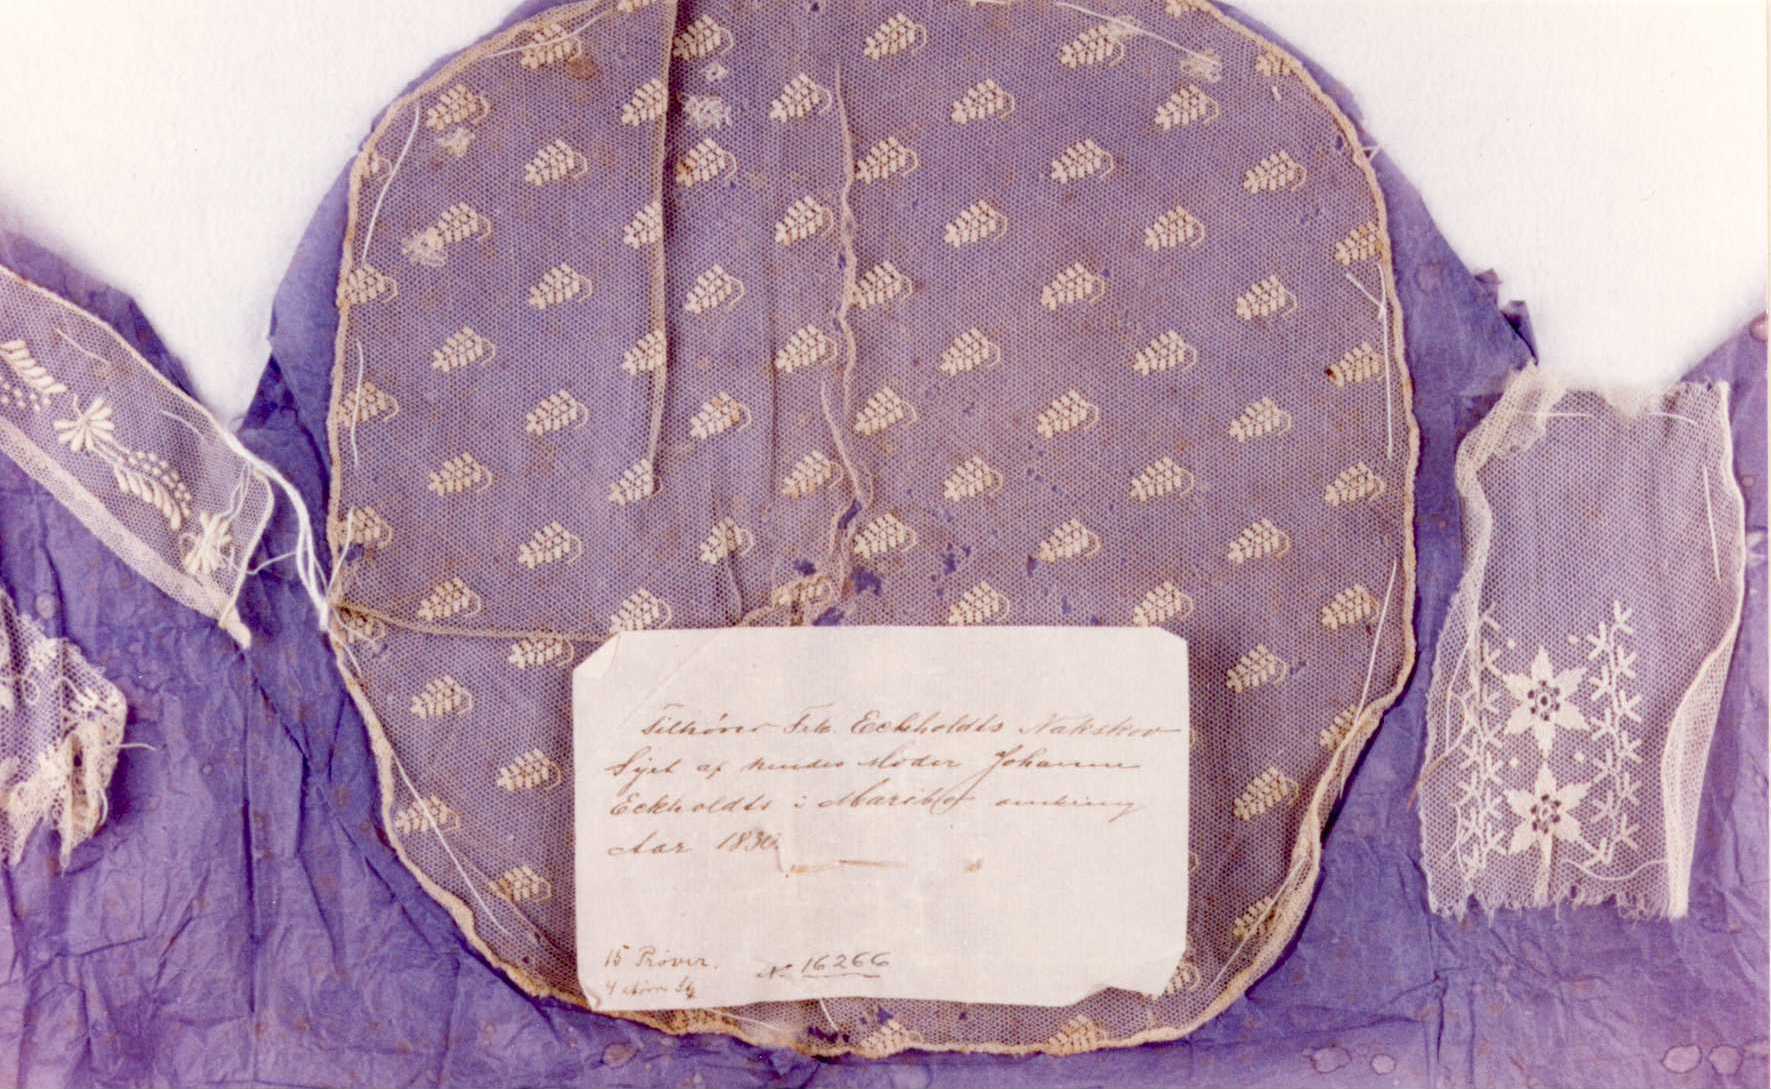 Tilhører Frk. Eckholdts Nakskov
Syet af hendes Moder Johanne
Eckholdts i Maribo omkring
Aar 1830.
15 Prøver.
No 16266
4 større